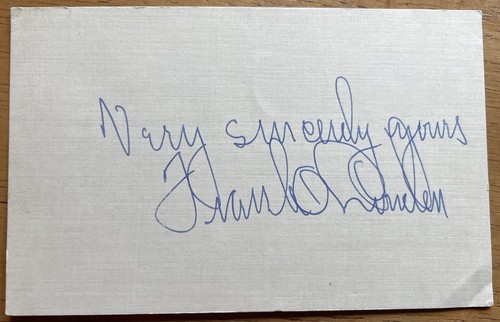 Very sincerely yours
Frank O. Lowden